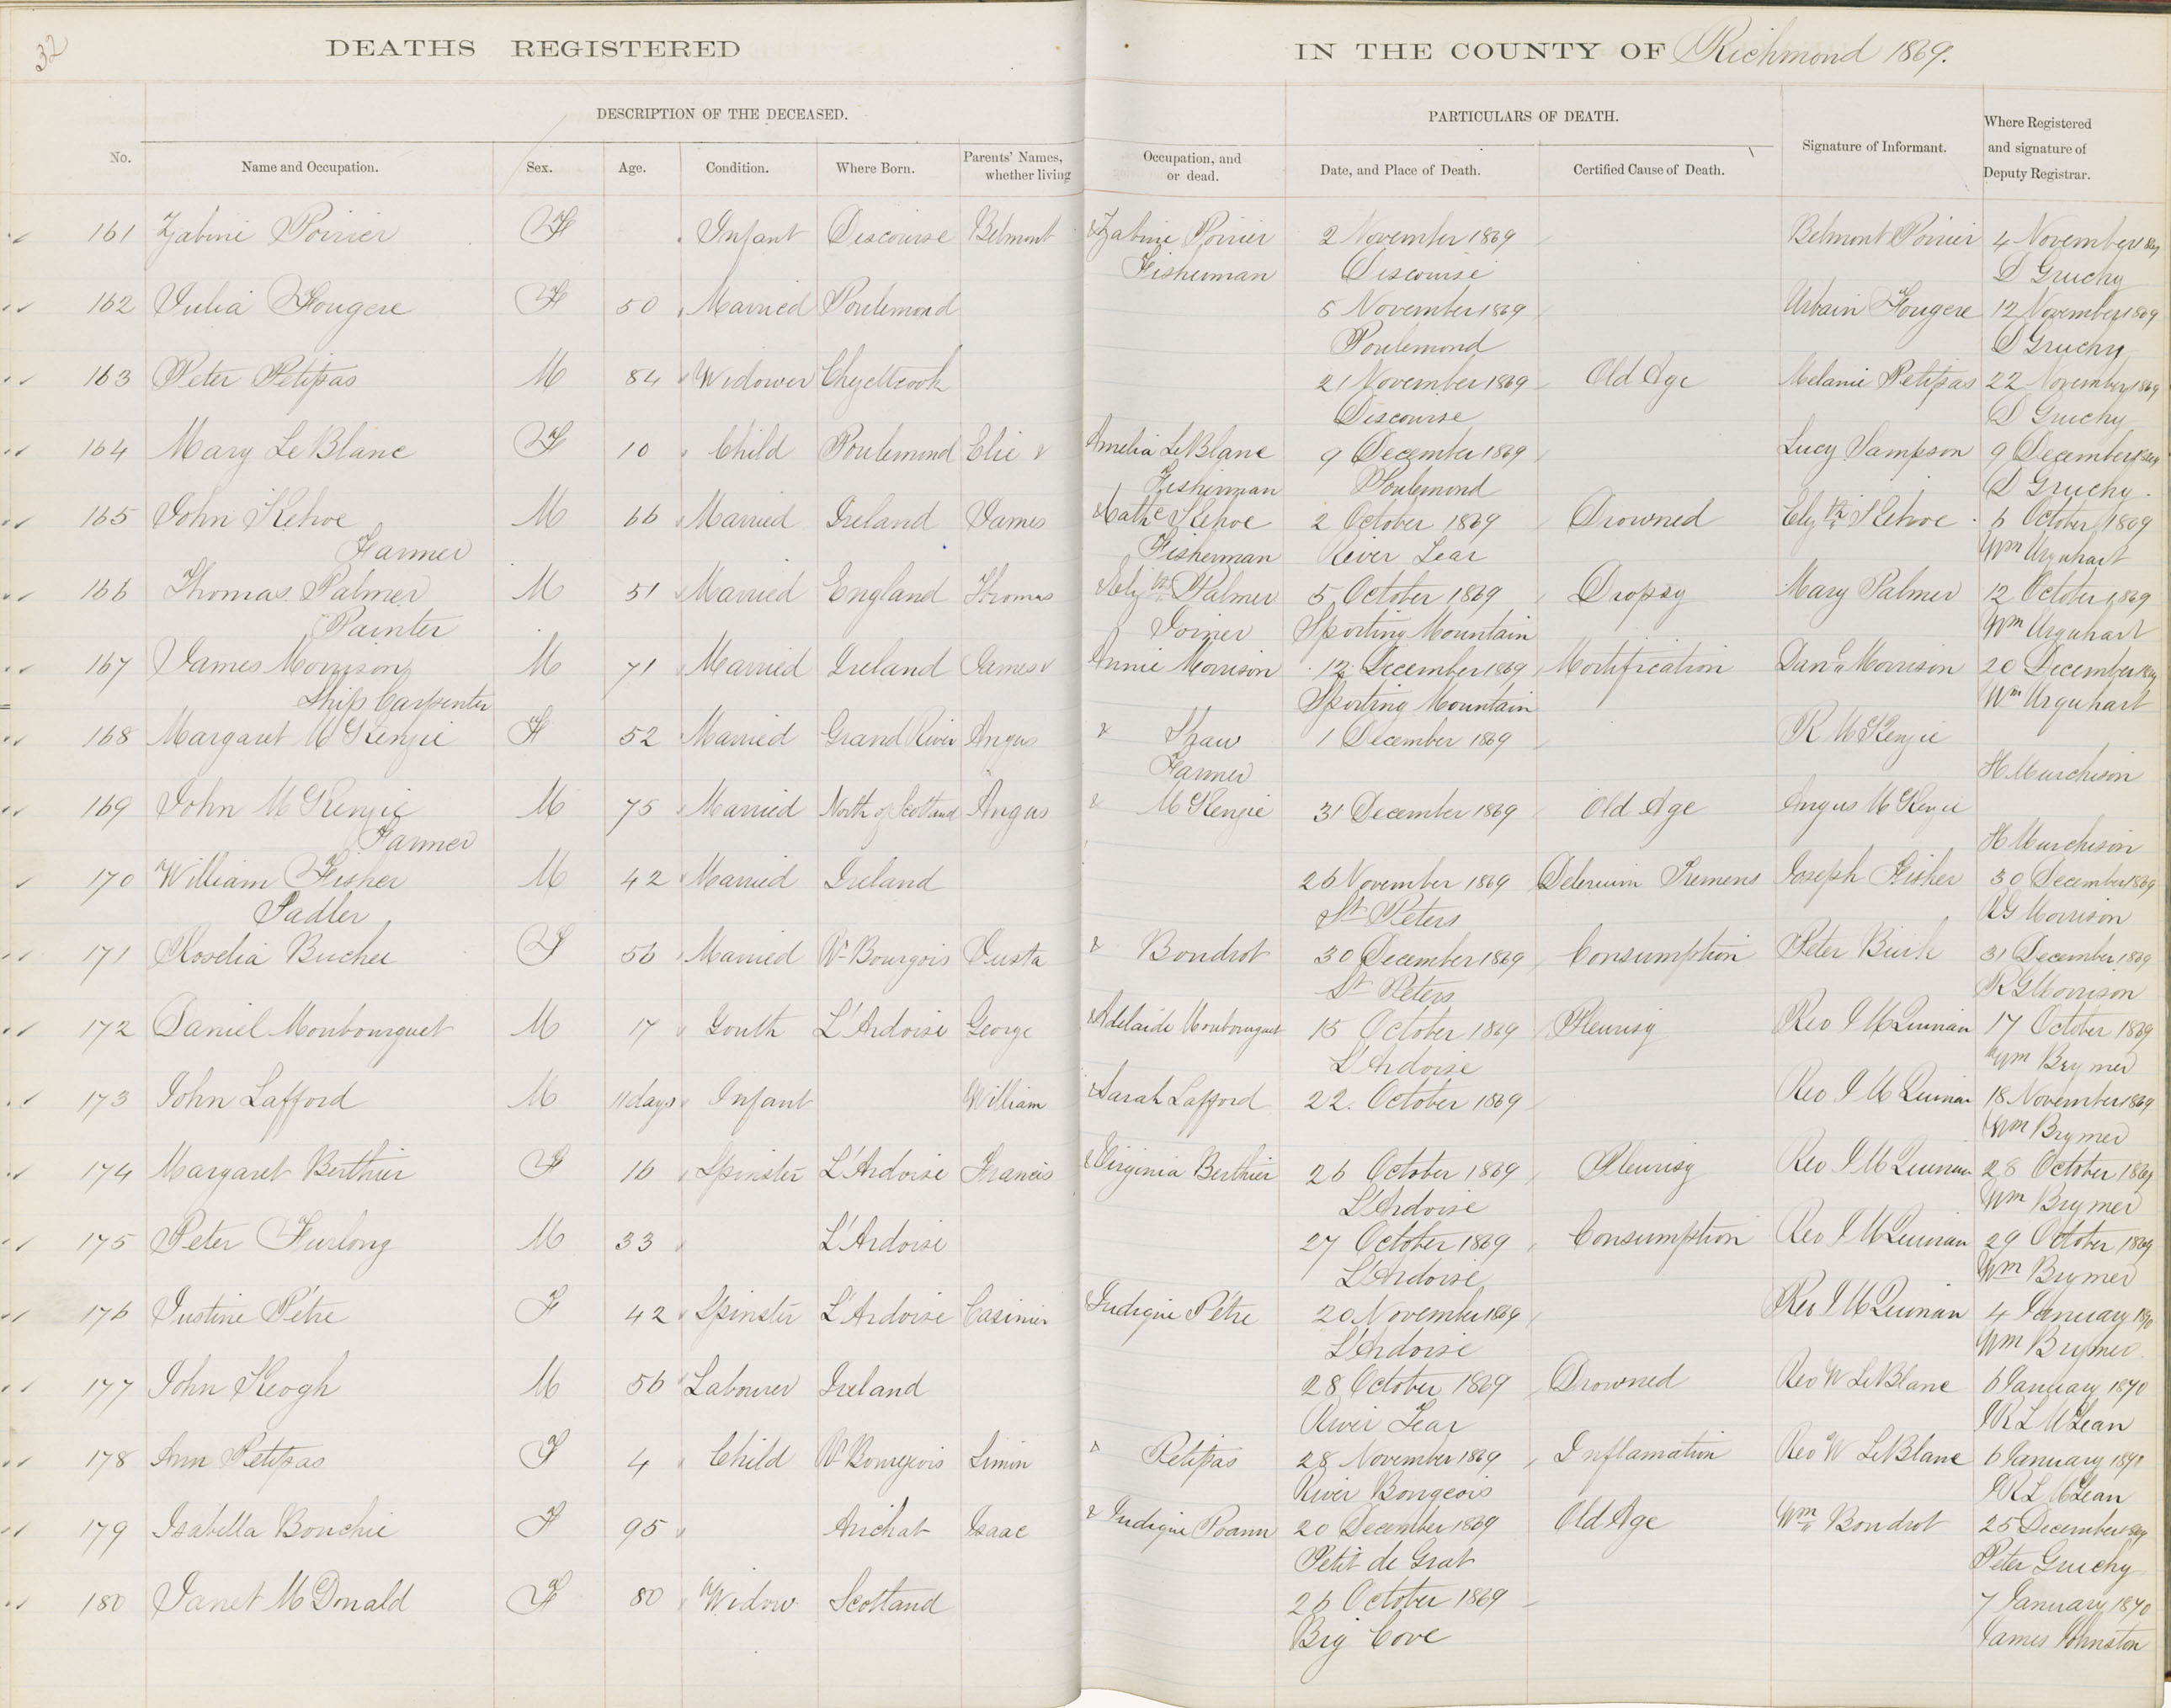 32
DEATHS REGISTERED IN THE COUNTY OF Richmond 1869.
DESCRIPTION OF THE DECEASED. PARTICULARS OF DEATH.
No. Name and Occupation. Sex. Age. Condition. Where Born. Parents' Names, whether living Occupation, and or dead. Date, and Place of Death. Certified Cause of Death. Signature of Informant. Where Registered and signature of Deputy Registrar.
161 Zabine Poirier F Infant Discourse Belmont & Zabine Poirier 2 November 1869 Belmont Poirier 4 November 1869
Fisherman Discourse D Gruchy
162 Julia Fougere F 50 Married Poulemond 5 November 1869 Urbain Fougere 12 November 1869
Poulemond D Gruchy
163 Peter Petipas M 84 Widower Chezettcook 21 November 1869 Old Age Melanie Petipas 22 November 1869
Discourse D Gruchy
164 Mary LeBlanc F 10 Child Poulemond Elie & Amelia LeBlanc 9 December 1869 Lucy Sampson 9 December 1869
Fisherman Poulemond D Gruchy.
165 John Kehoe M 66 Married Ireland James & Cathe Kehoe 2 October 1869 Drowned Elizth Kehoe 6 October 1869
Farmer Fisherman River Tear Wm Urquhart
166 Thomas Palmer M 51 Married England Thomas & Elizth Palmer 5 October 1869 Dropsy Mary Palmer 12 October 1869
Painter Joiner Sporting Mountain Wm Urquhart
167 James Morrison M 71 Married Ireland James & Annie Morrison 12 December 1869 Mortification Danl Morrison 20 December 1869
Ship Carpenter Sporting Mountain Wm Urquhart
168 Margaret McKenzie F 52 Married Grand River Angus & Shaw 1 December 1869 R McKenzie
Farmer H Murchison
169 John McKenzie M 75 Married North of Scotland Angus & McKenzie 31 December 1869 Old Age Angus McKenzie
Farmer H Murchison
170 William Fisher M 42 Married Ireland 26 November 1869 Delerium Tremens Joseph Fisher 30 December 1869
Sadler St Peters RG Morrison
171 Roselia Bucher F 56 Married Rr Bourgois Justa & Bondrot 30 December 1869 Consumption Peter Burk 31 December 1869
St Peters RG Morrison
172 Daniel Monbourquet M 17 Youth L'Ardoise George & Adelaide Monbourquet 15 October 1869 Pleurisy Rev J McQuinan 17 October 1869
L'Ardoise Wm Brymer
173 John Lafford M 11 days Infant William & Sarah Lafford 22 October 1869 Rev J McQuinan 18 November 1869
Wm Brymer
174 Margaret Berthier F 16 Spinster L'Ardoise Francis & Virginia Berthier 26 October 1869 Pleurisy Rev J McQuinan 28 October 1869
L'Ardoise Wm Brymer
175 Peter Furlong M 33 L'Ardoise 27 October 1869 Consumption Rev J McQuinan 29 October 1869
L'Ardoise Wm Brymer
176 Justine Pétre F 42 Spinster L'Ardoise Casimir Judique Pétre 20 November 1869 Rev J McQuinan 4 January 1870
L'Ardoise Wm Brymer
177 John Keogh M 56 Labourer Ireland 28 October 1869 Drowned Rev W LeBlanc 6 January 1870
River Tear JRL McLean
178 Ann Petipas F 4 Child Rr Bourgeois Simon & Petipas 28 November 1869 Inflamation Rev W LeBlanc 6 January 1870
River Bourgeois JRL McLean
179 Isabella Bonchie F 95 Arichat Isaac & Judique Poann 20 December 1869 Old Age Wm Bondrot 25 December 1869
Petit de Grat Peter Gruchy
180 Janet McDonald F 80 Widow Scotland 26 October 1869 7 January 1870
Big Cove James Johnston